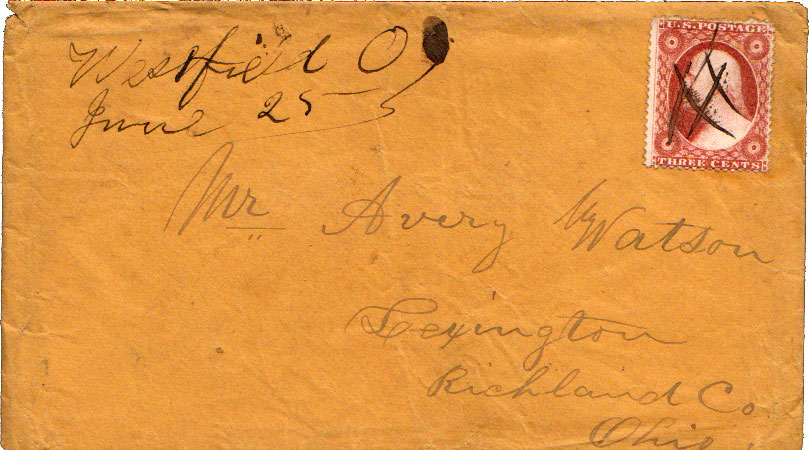 Westfield O
June 25
U.S. POSTAGE
THREE CENTS
Mr Avery Watson
Lexington
Richland Co
Ohio.